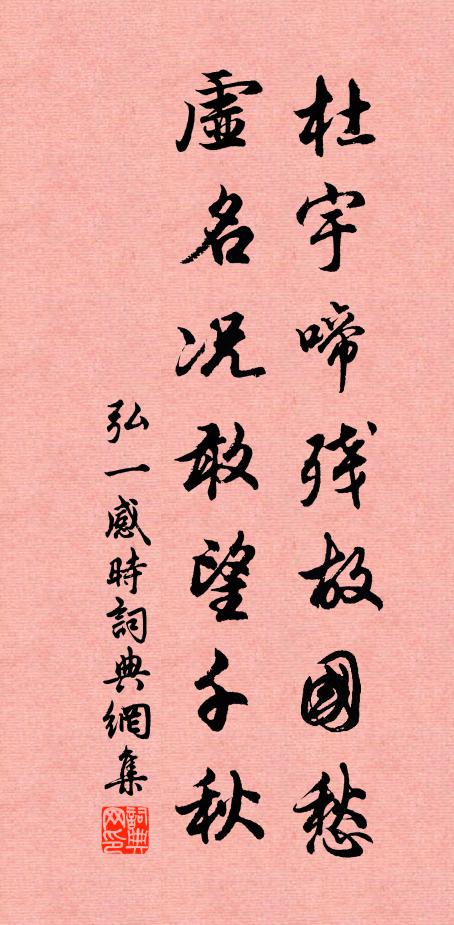 杜宇啼残故國愁
虛名况敢望千秋
弘一感時詞典網集
詞典网印